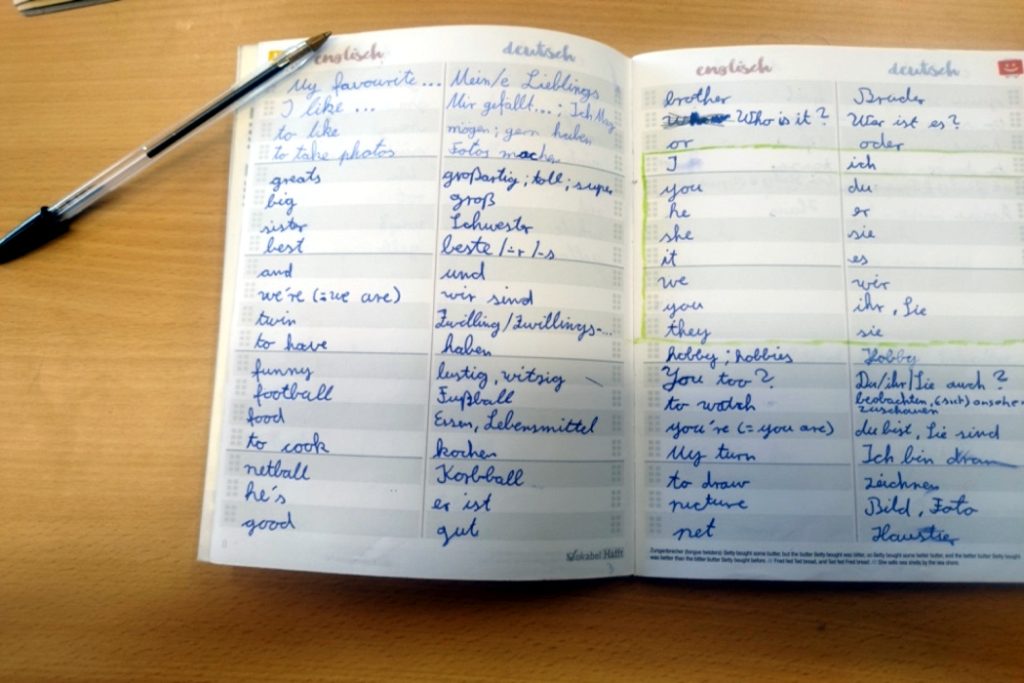 englisch deutsch
My favourite ... Mein/e Lieblings
I like ... Mir gefällt...; Ich mag
to like mögen; gern haben
to take photos Fotos machen
greats großartig; toll; super
big groß
sister Schwester
best beste/-r/-s
and und
we're (= we are) wir sind
twin Zwilling/Zwillings-...
to have haben
funny lustig, witzig
football Fußball
food Essen, Lebensmittel
to cook kochen
netball Korbball
he's er ist
good gut
Vokabel Häfft
englisch deutsch
brother Bruder
Who is it? Wer ist es?
or oder
I ich
you du
he er
she sie
it es
we wir
you ihr, Sie
they sie
hobby; hobbies Hobby
You too? Du/ihr/Sie auch?
to watch beobachten, (sich) ansehen
zuschauen
you're (= you are) du bist, Sie sind
My turn Ich bin dran
to draw zeichnen
picture Bild, Foto
pet Haustier
Zungenbrecher (tongue twisters): Betty bought some butter, but the butter Betty bought was bitter, so Betty bought some better butter, and the better butter Betty bought
was better than the bitter butter Betty bought before. Fred fed Ted bread, and Ted fed Fred bread. She sells sea shells by the sea shore.